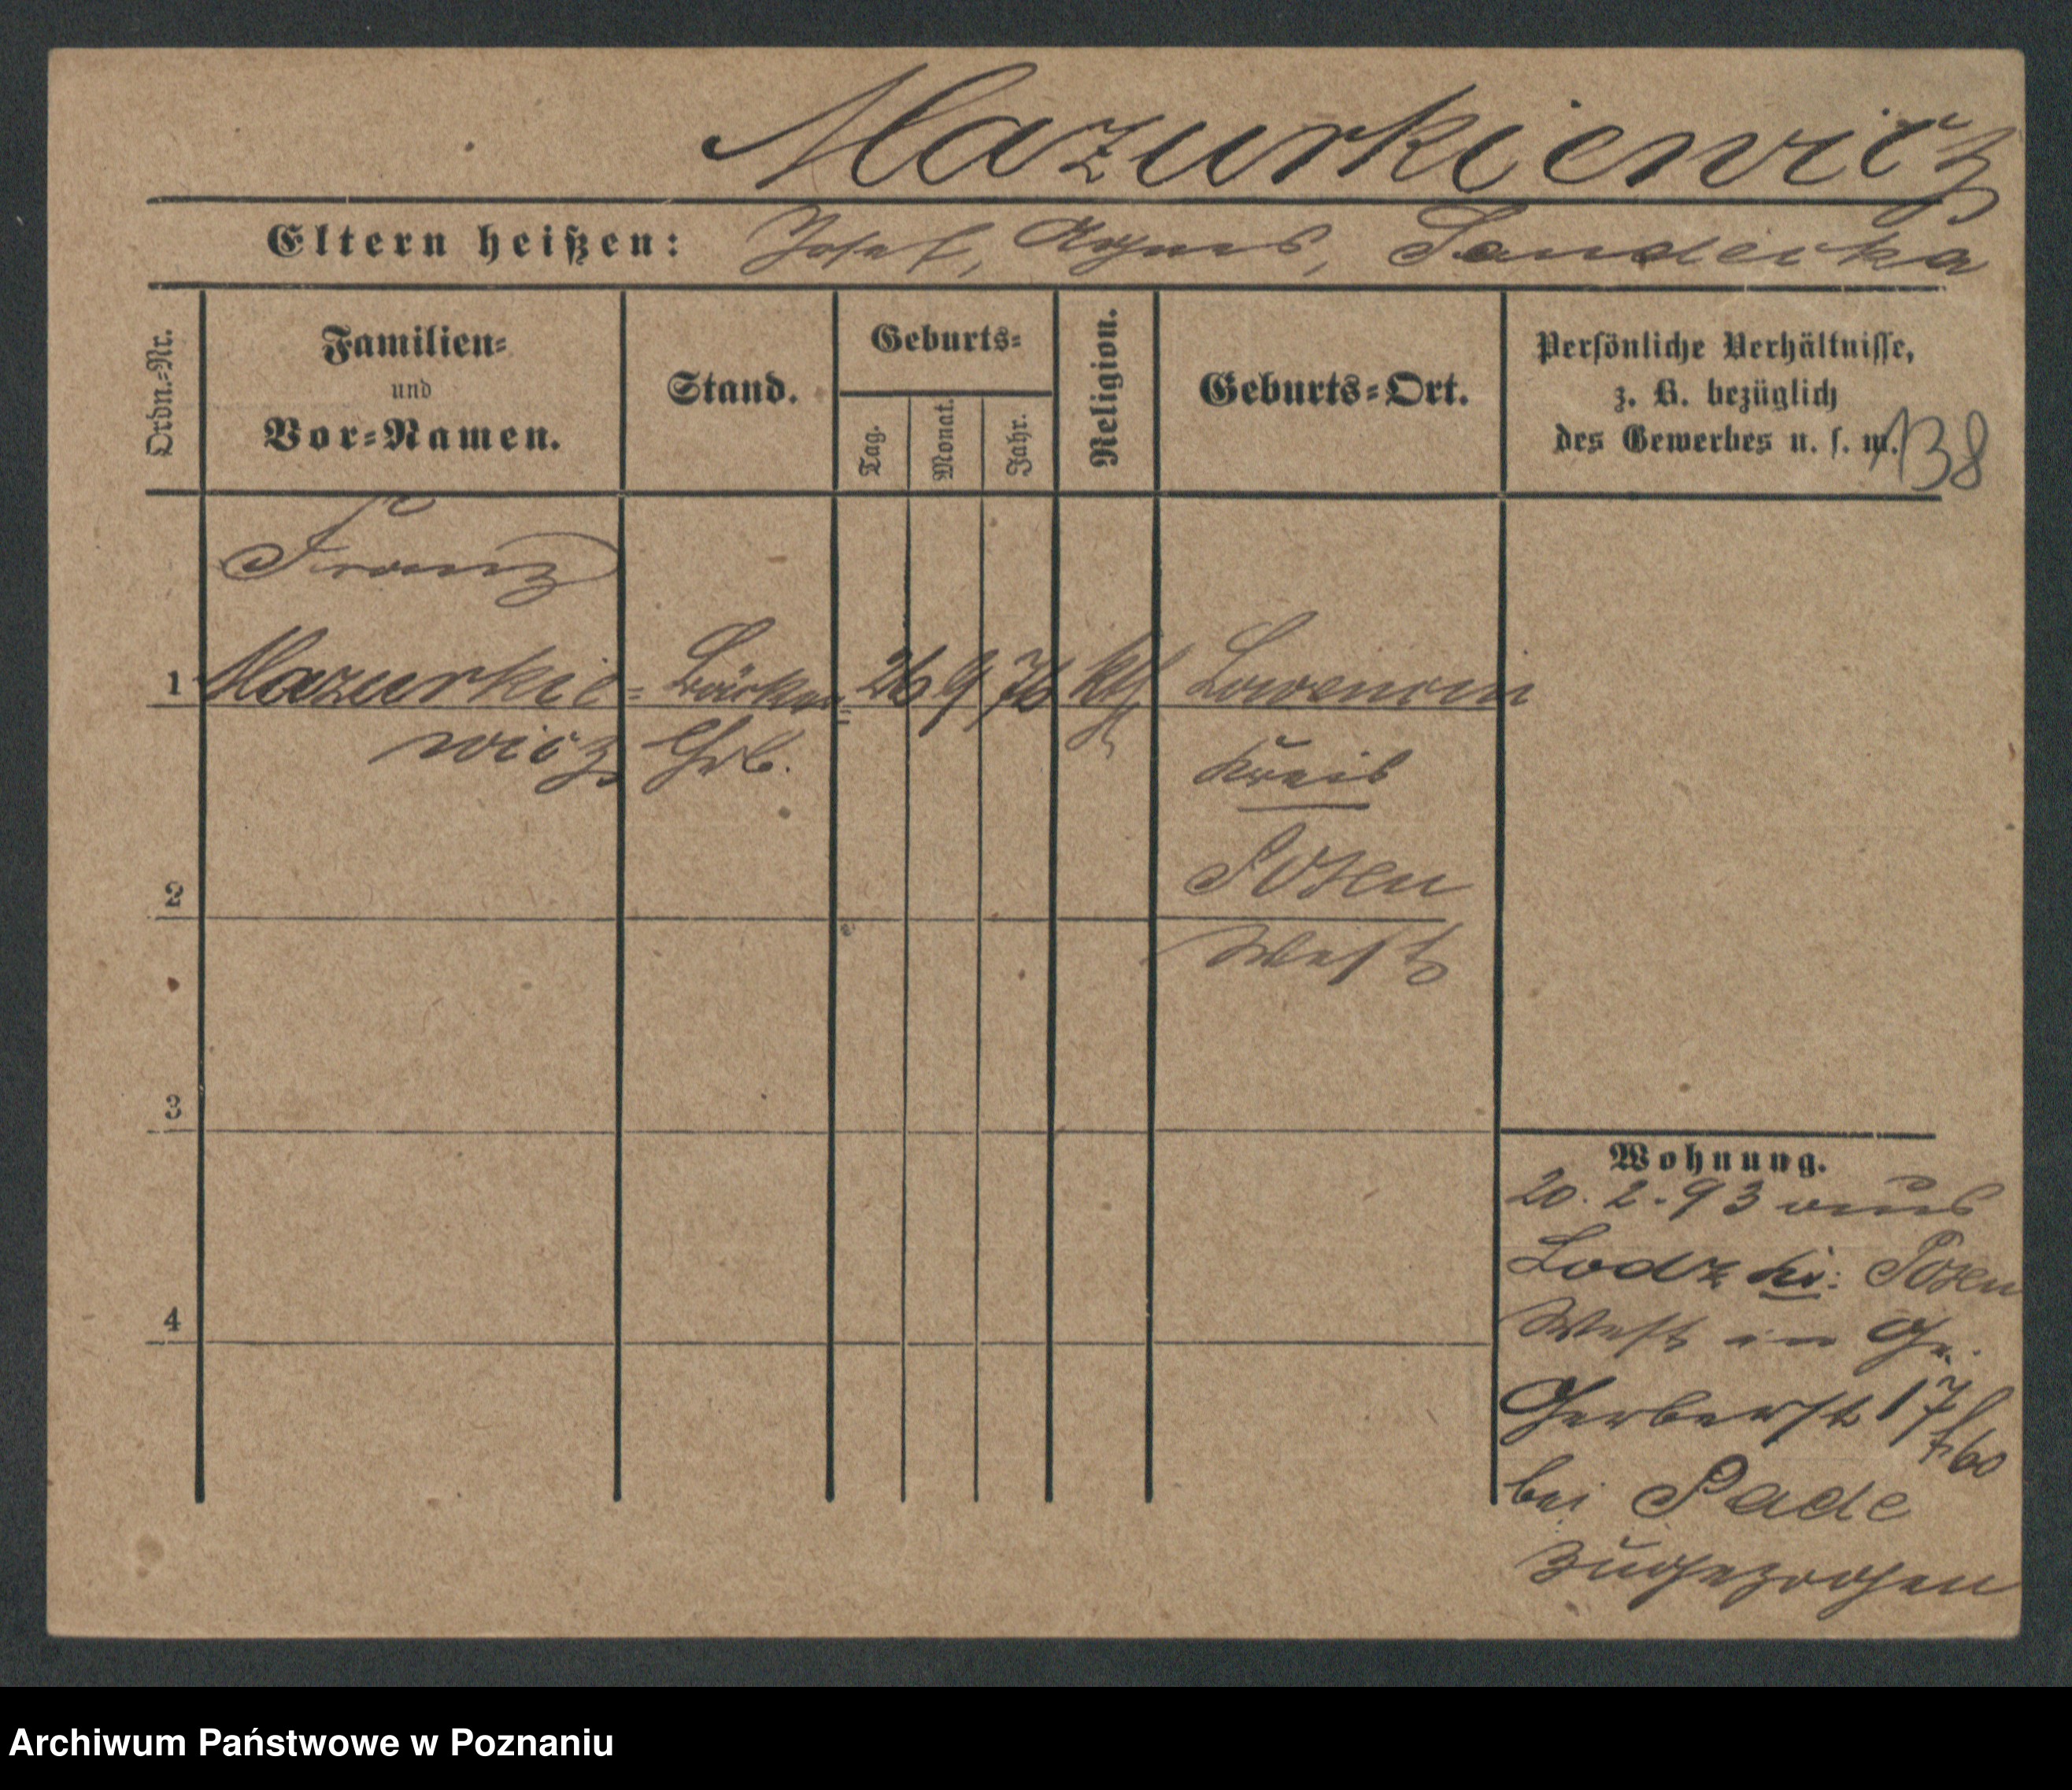 Mazurkiewicz
Eltern heißen: Josef, Agnes, Sanderka
Ordn.-Nr.
Familien-
und
Vor-Namen.
Stand.
Geburts-
Tag.
Monat.
Jahr.
Religion.
Geburts-Ort.
Persönliche Verhältnisse,
z. B. bezüglich
des Gewerbes u. s. w.
138
Franz
1 Mazurkie- Bäcker- 26 9 76 kth Lowencin
wicz Lehrl. Kreis
2 Posen
West
3
4
Wohnung.
20. 2. 93 aus
Lodz Kr: Posen
West in Gr.
Gerberst 17
bei Pade
zugezogen
Archiwum Państwowe w Poznaniu